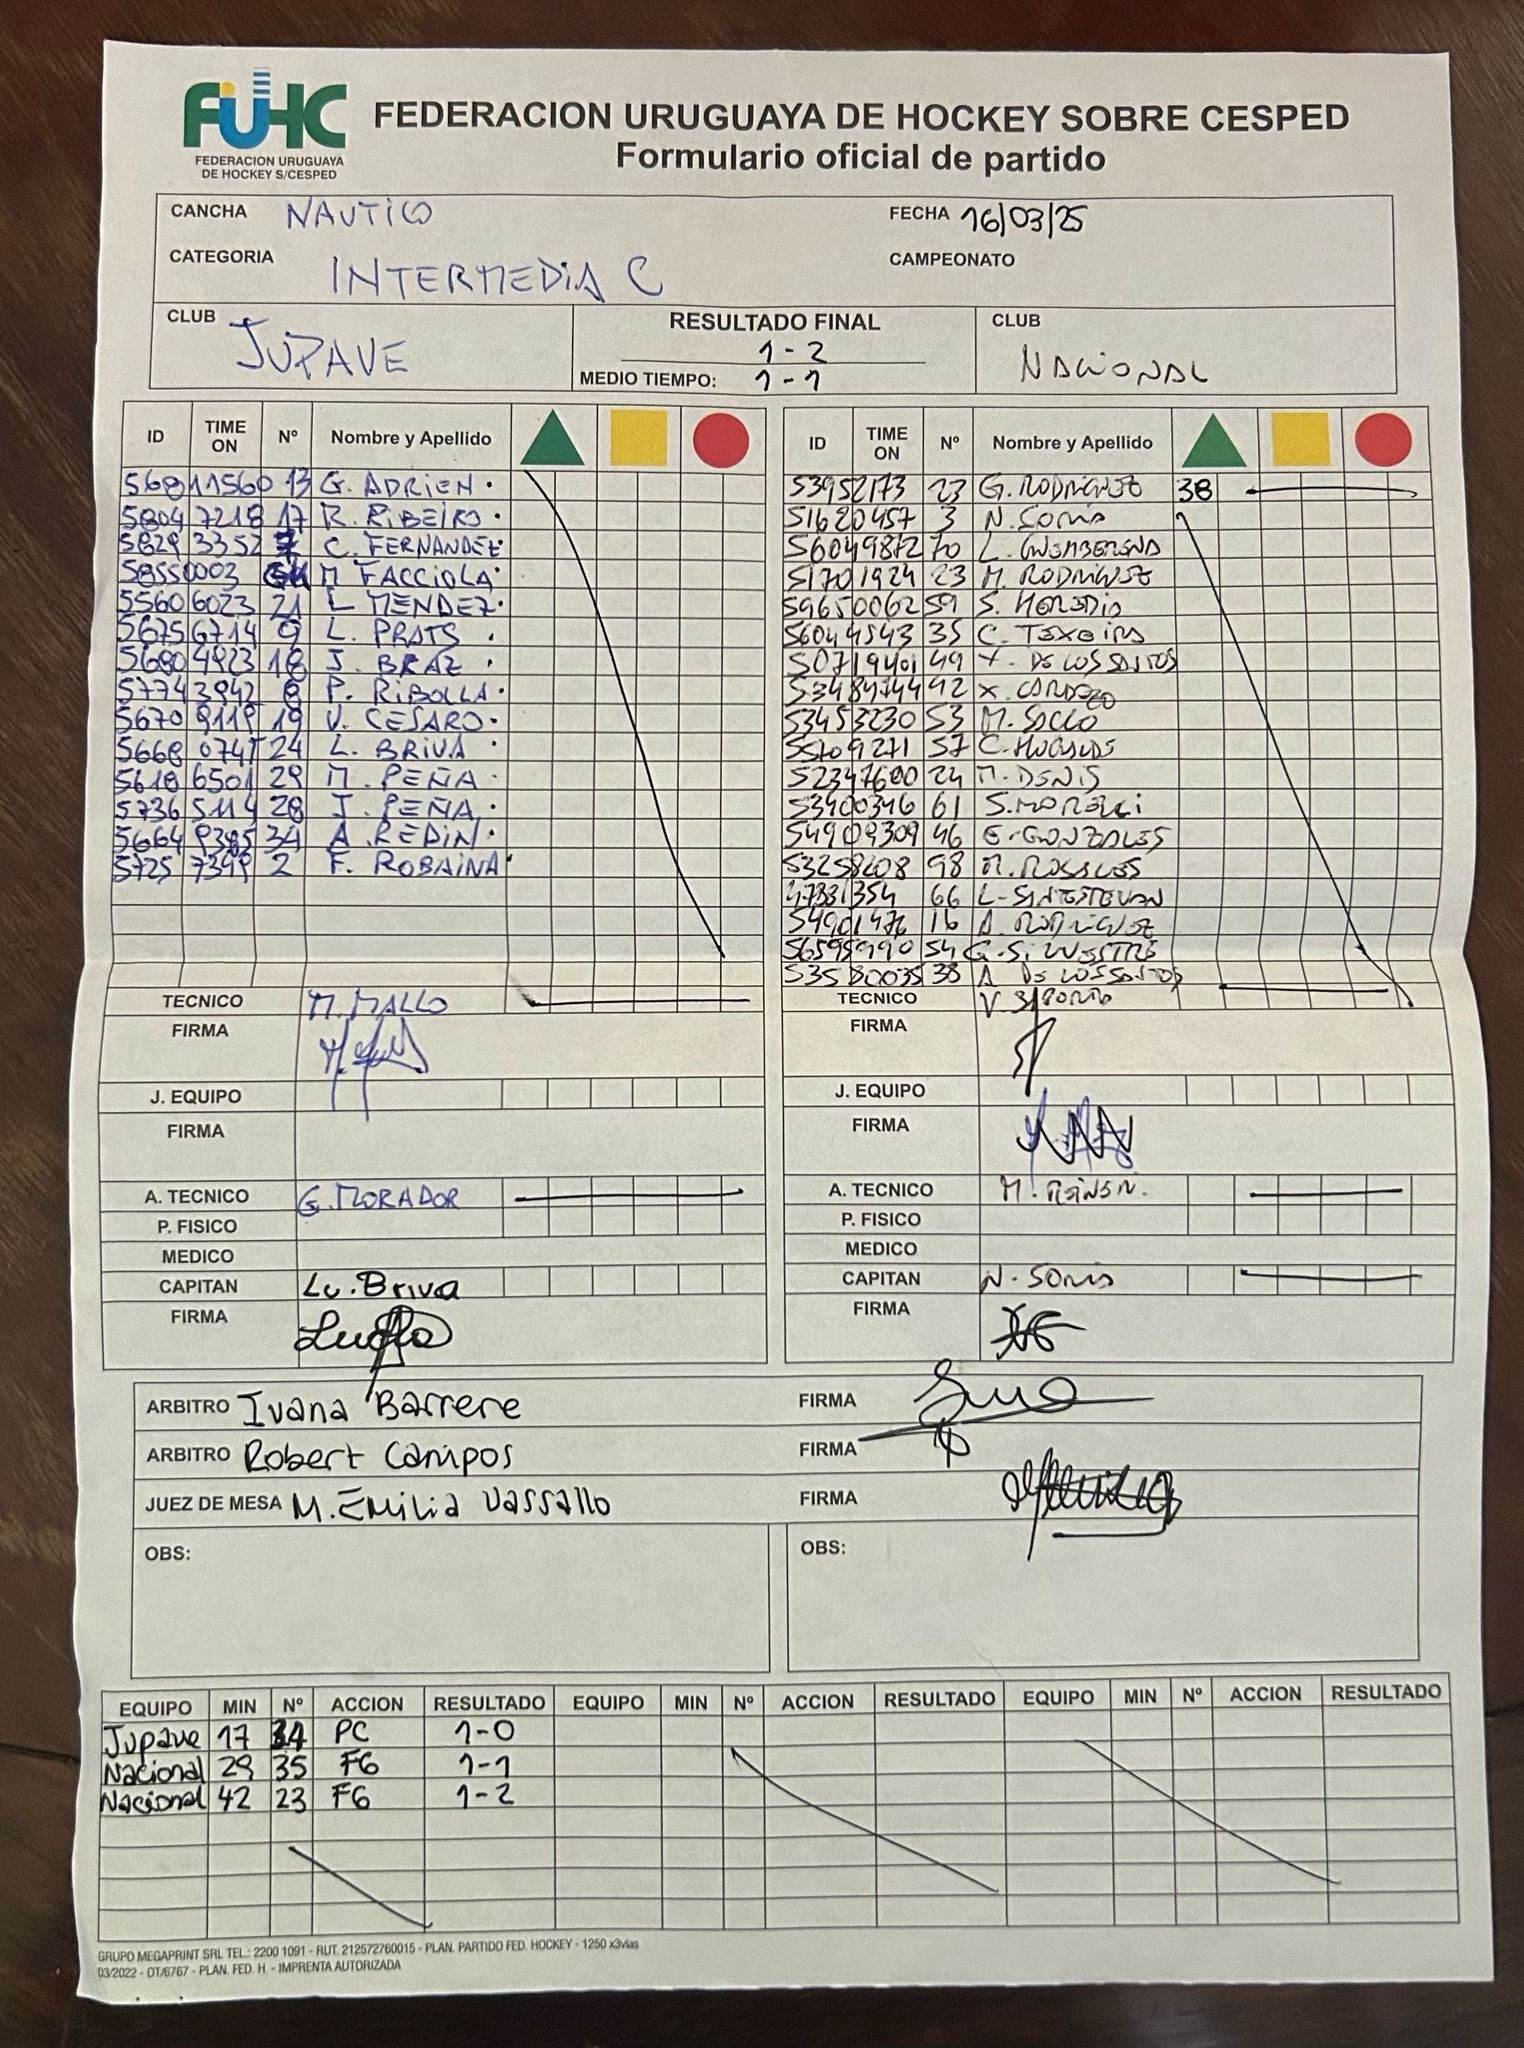 FUHC
FEDERACION URUGUAYA
DE HOCKEY S/CESPED
FEDERACION URUGUAYA DE HOCKEY SOBRE CESPED
Formulario oficial de partido
CANCHA NAUTICO FECHA 16/03/25
CATEGORIA INTERMEDIA C CAMPEONATO
CLUB JUPAVE RESULTADO FINAL 1-2 CLUB NACIONAL
MEDIO TIEMPO: 1-1
ID TIME ON Nº Nombre y Apellido
56811560 13 G. ADRIEN
58047218 17 R. RIBEIRO
58293352 7 C. FERNANDEZ
58550003 M FACCIOLA
55606023 21 L MENDEZ
56756714 9 L. PRATS
56804923 18 J. BRAZ
57743942 8 P. RIBOLLA
56709119 19 V. CESARO
5668 24 L. BRIVA
56186501 29 M. PEÑA
57365114 28 J. PEÑA
5664 34 A. REDIN
57257349 2 F. ROBAINA
TECNICO M. MALLO
FIRMA
J. EQUIPO
FIRMA
A. TECNICO G. MORADOR
P. FISICO
MEDICO
CAPITAN Lu. Briva
FIRMA
ID TIME ON Nº Nombre y Apellido
53952173 23 G. RODRIGUEZ 38
51620457 3 N. SORIA
56049872 70 L.
51701924 23 M. RODRIGUEZ
59650062 59 S. HEREDIA
56044543 35 C. TEXEIRA
50719401 49 Y. DE LOS SANTOS
53484744 92 X. CARDOZO
53453230 53 M. SACCO
55109271 57 C.
52347600 24 M. DENIS
53400346 61 S. MORELLI
54909309 46 E. GONZALES
53258208 98 M. ROSALES
47831354 66 L. SANTESTEVAN
54901476 16 A. RODRIGUEZ
56595990 54 G. SILVESTRE
53580035 38 A DE LOS SANTOS
TECNICO V.
FIRMA
J. EQUIPO
FIRMA
A. TECNICO M.
P. FISICO
MEDICO
CAPITAN N. SORIA
FIRMA
ARBITRO Ivana Barrene FIRMA
ARBITRO Robert Campos FIRMA
JUEZ DE MESA M. Emilia Vassallo FIRMA
OBS: OBS:
EQUIPO MIN Nº ACCION RESULTADO EQUIPO MIN Nº ACCION RESULTADO EQUIPO MIN Nº ACCION RESULTADO
Jupave 17 34 PC 1-0
Nacional 29 35 FG 1-1
Nacional 42 23 FG 1-2
GRUPO MEGAPRINT SRL TEL.: 2200 1091 - RUT. 212572760015 - PLAN. PARTIDO FED. HOCKEY - 1250 x3vias
03/2022 - OT/6767 - PLAN. FED. H. - IMPRENTA AUTORIZADA